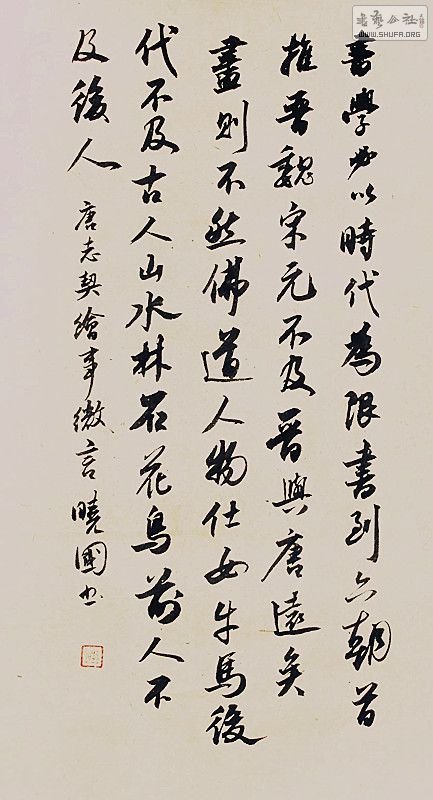 書學必以時代為限書到六朝首
推晋魏宋元不及晋與唐遠矣
畫則不然佛道人物仕女牛馬後
代不及古人山水林石花鳥前人不
及後人
唐志契繪事微言曉國書
書藝公社
WWW.SHUFA.ORG